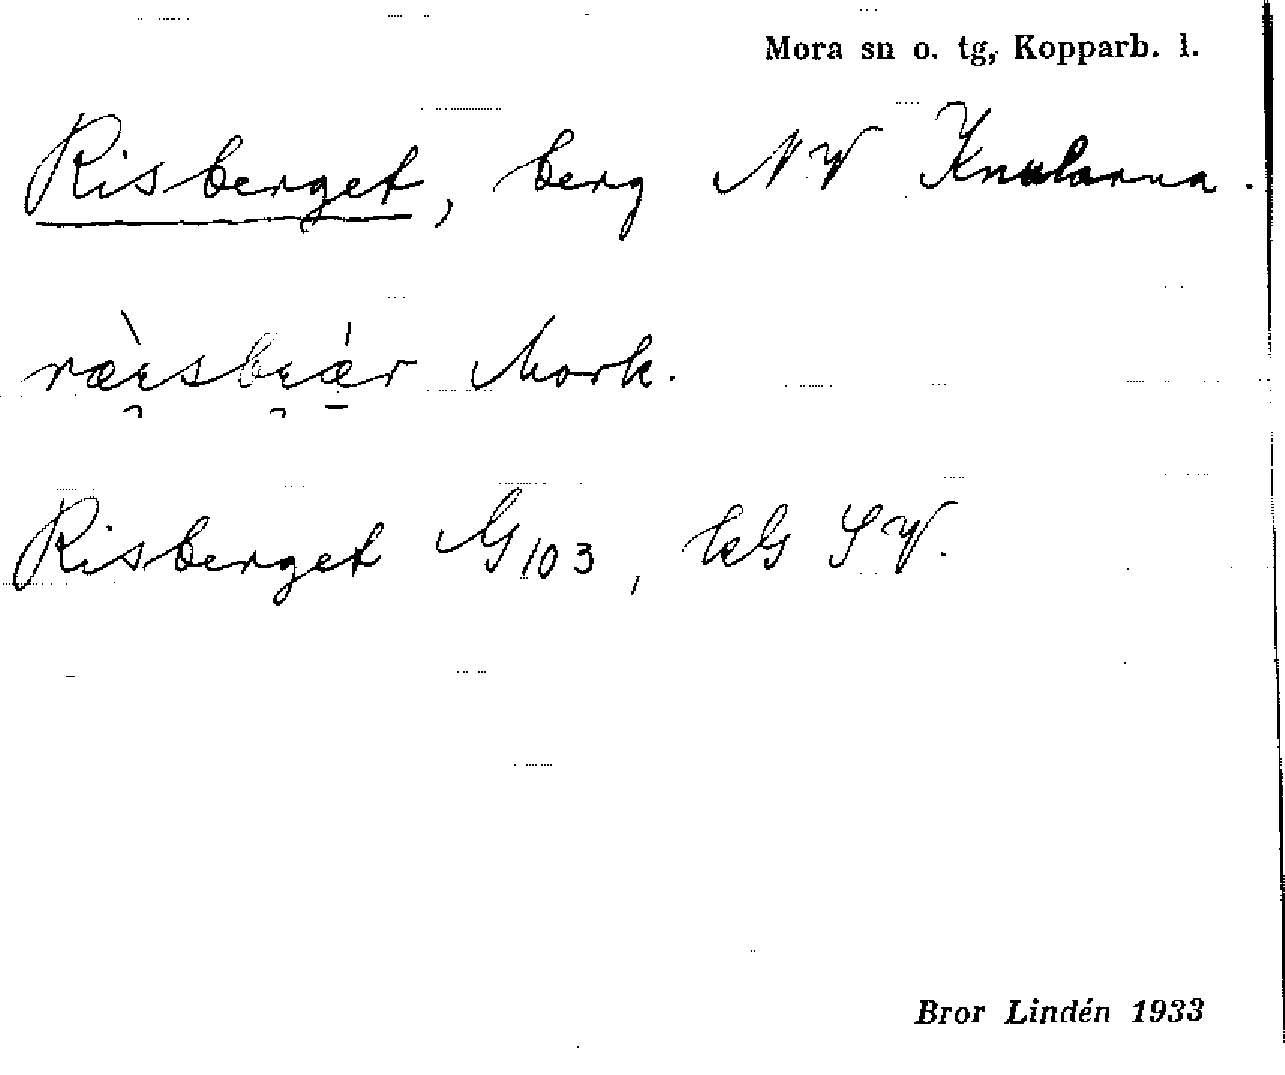 Mora sn o. tg, Kopparb. l.
Risberget, berg NV Knularna.
Mork.
Risberget G103, SV.
Bror Lindén 1933